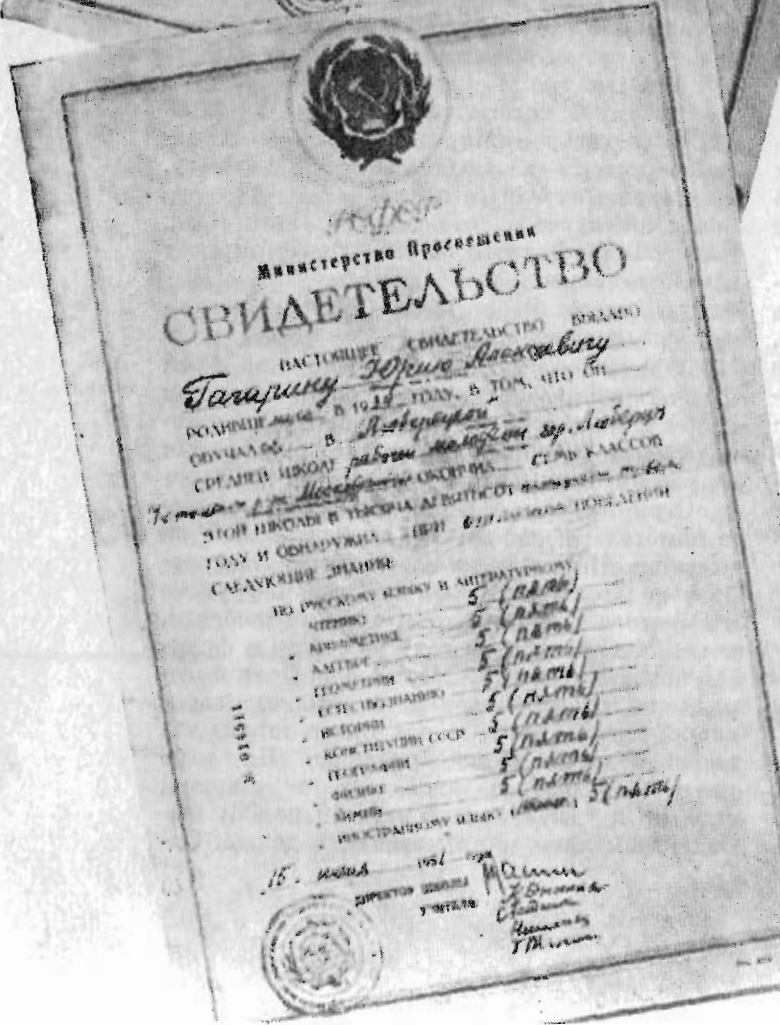 РСФСР
Министерство Просвещения
СВИДЕТЕЛЬСТВО
НАСТОЯЩЕЕ СВИДЕТЕЛЬСТВО ВЫДАНО
Гагарину Юрию Алексеевичу
В 1934 ГОДУ, В ТОМ, ЧТО ОН
ОБУЧАЛ В Люберецкой
СРЕДНЕЙ ШКОЛЕ рабочей молодежи гор. Люберцы
ОКОНЧИЛ СЕМЬ КЛАССОВ
ЭТОЙ ШКОЛЫ В ТЫСЯЧА ДЕВЯТЬСОТ
ГОДУ И ОБНАРУЖИЛ ПРИ ПОВЕДЕНИИ
СЛЕДУЮЩИЕ ЗНАНИЯ:
ПО РУССКОМУ ЯЗЫКУ И ЛИТЕРАТУРНОМУ
ЧТЕНИЮ 5 (пять)
" АРИФМЕТИКЕ 5 (пять)
" АЛГЕБРЕ 5 (пять)
" ГЕОМЕТРИИ 5 (пять)
" ЕСТЕСТВОЗНАНИЮ 5 (пять)
" ИСТОРИИ 5 (пять)
" КОНСТИТУЦИИ СССР 5 (пять)
" ГЕОГРАФИИ 5 (пять)
" ФИЗИКЕ 5 (пять)
" ХИМИИ 5 (пять)
" ИНОСТРАННОМУ ЯЗЫКУ 5 (пять)
15. 1951 года
ДИРЕКТОР ШКОЛЫ
УЧИТЕЛЯ: